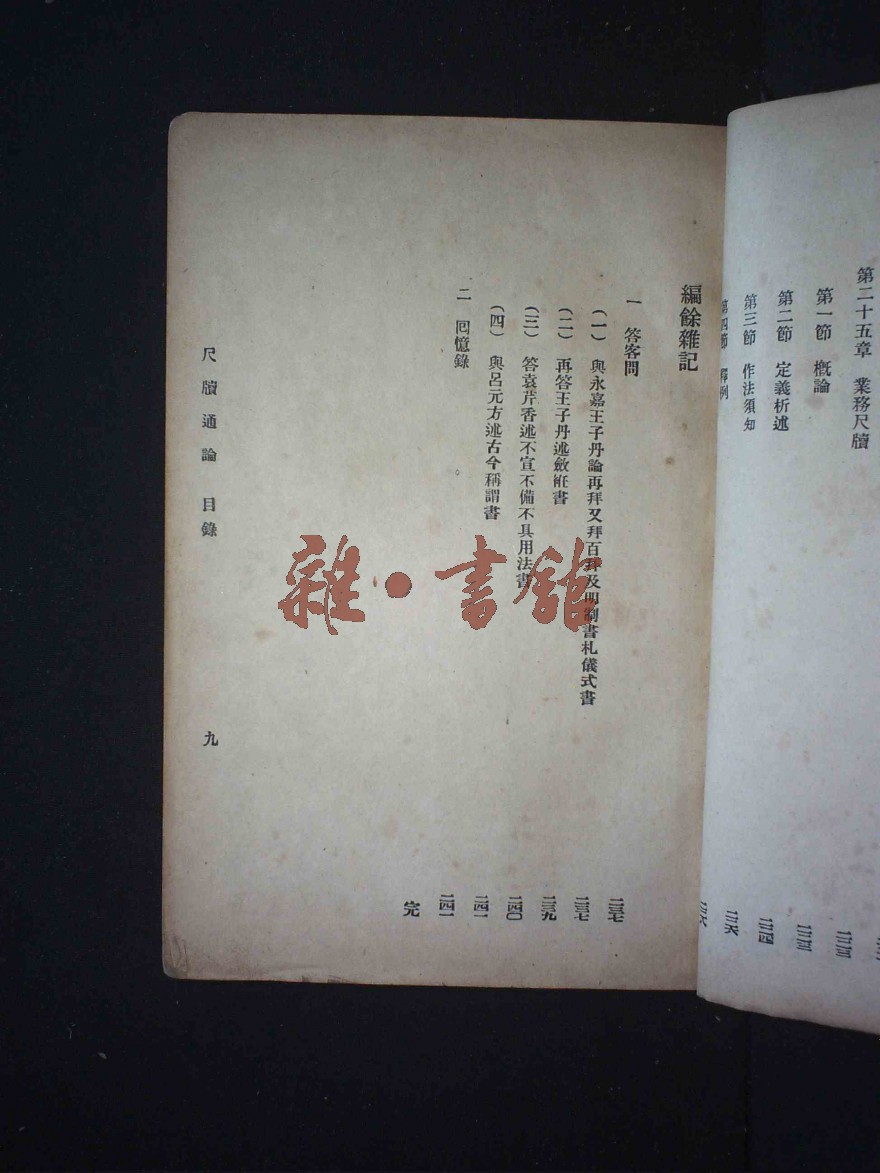 第二十五章 業務尺牘
第一節 概論 二三三
第二節 定義析述 二三三
第三節 作法須知 二三四
第四節 釋例 二三六
編餘雜記
一 答客問 二三七
(一) 與永嘉王子丹論再拜又拜百拜及明制書札儀式書 二三七
(二) 再答王子丹述斂衽書 二三九
(三) 答袁芹香述不宣不備不具用法書 二四〇
(四) 與呂元方述古今稱謂書 二四一
二 囘憶錄 二四一
完
尺牘通論 目錄 九
雜·書館